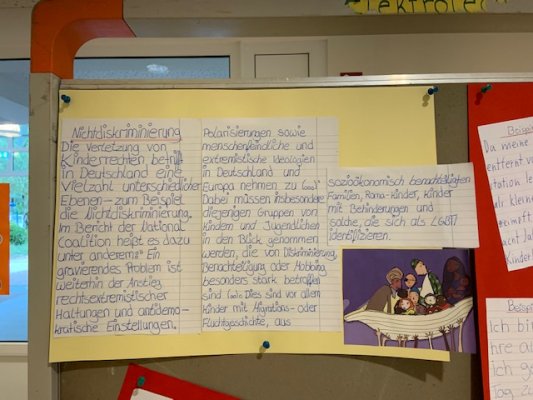 Elektrotec
Nichtdiskriminierung
Die Verletzung von
Kinderrechten betrifft
in Deutschland eine
Vielzahl unterschiedlicher
Ebenen – zum Beispiel
die Nichtdiskriminierung.
Im Bericht der National
Coalition heißt es dazu
unter anderem: „Ein
gravierendes Problem ist
weiterhin der Anstieg
rechtsextremistischer
Haltungen und antidemo-
kratische Einstellungen.
Polarisierungen sowie
menschenfeindliche und
extremistische Ideologien
in Deutschland und
Europa nehmen zu (...)
Dabei müssen insbesondere
diejenigen Gruppen von
Kindern und Jugendlichen
in den Blick genommen
werden, die von Diskriminierung,
Benachteiligung oder Mobbing
besonders stark betroffen
sind (...). Dies sind vor allem
Kinder mit Migrations- oder
Fluchtgeschichte, aus
sozioökonomisch benachteiligten
Familien, Roma-Kinder, Kinder
mit Behinderungen und
solche, die sich als LGBTI
identifizieren.
Beispiel
Da meine
entfernt v
Kinder
Beispiel
Ich bin
ihre al
ich ge
Tag z